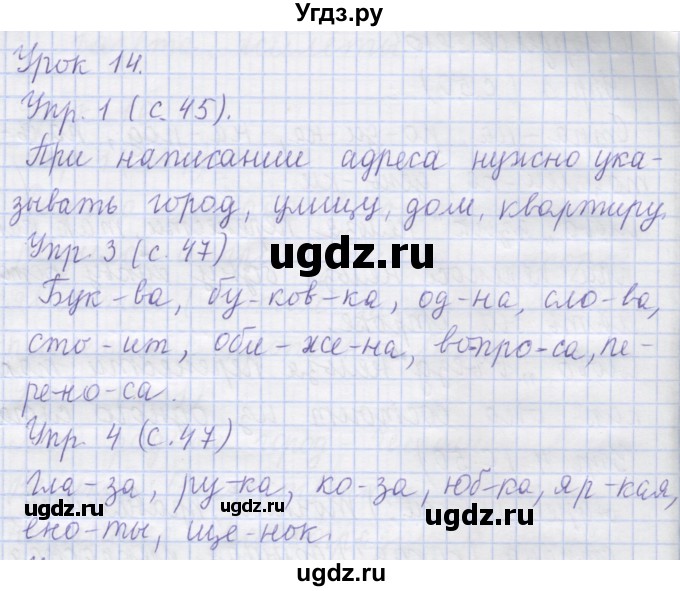 Угдз.ру
Урок 14.
Упр. 1 (с. 45).
При написании адреса нужно ука-
зывать город, улицу, дом, квартиру.
Упр 3 (с. 47)
ugdz.ru
Бук-ва, бу-ков-ка, од-на, сло-ва,
сто-ит, оби-же-на, во-про-са, пе-
ре-но-са.
Упр. 4 (с. 47)
гла-за, ру-ка, ко-за, юб-ка, яр-кая,
ugdz.ru ugdz.ru ugdz.ru
ено-ты, ще-нок.
ugdz.ru